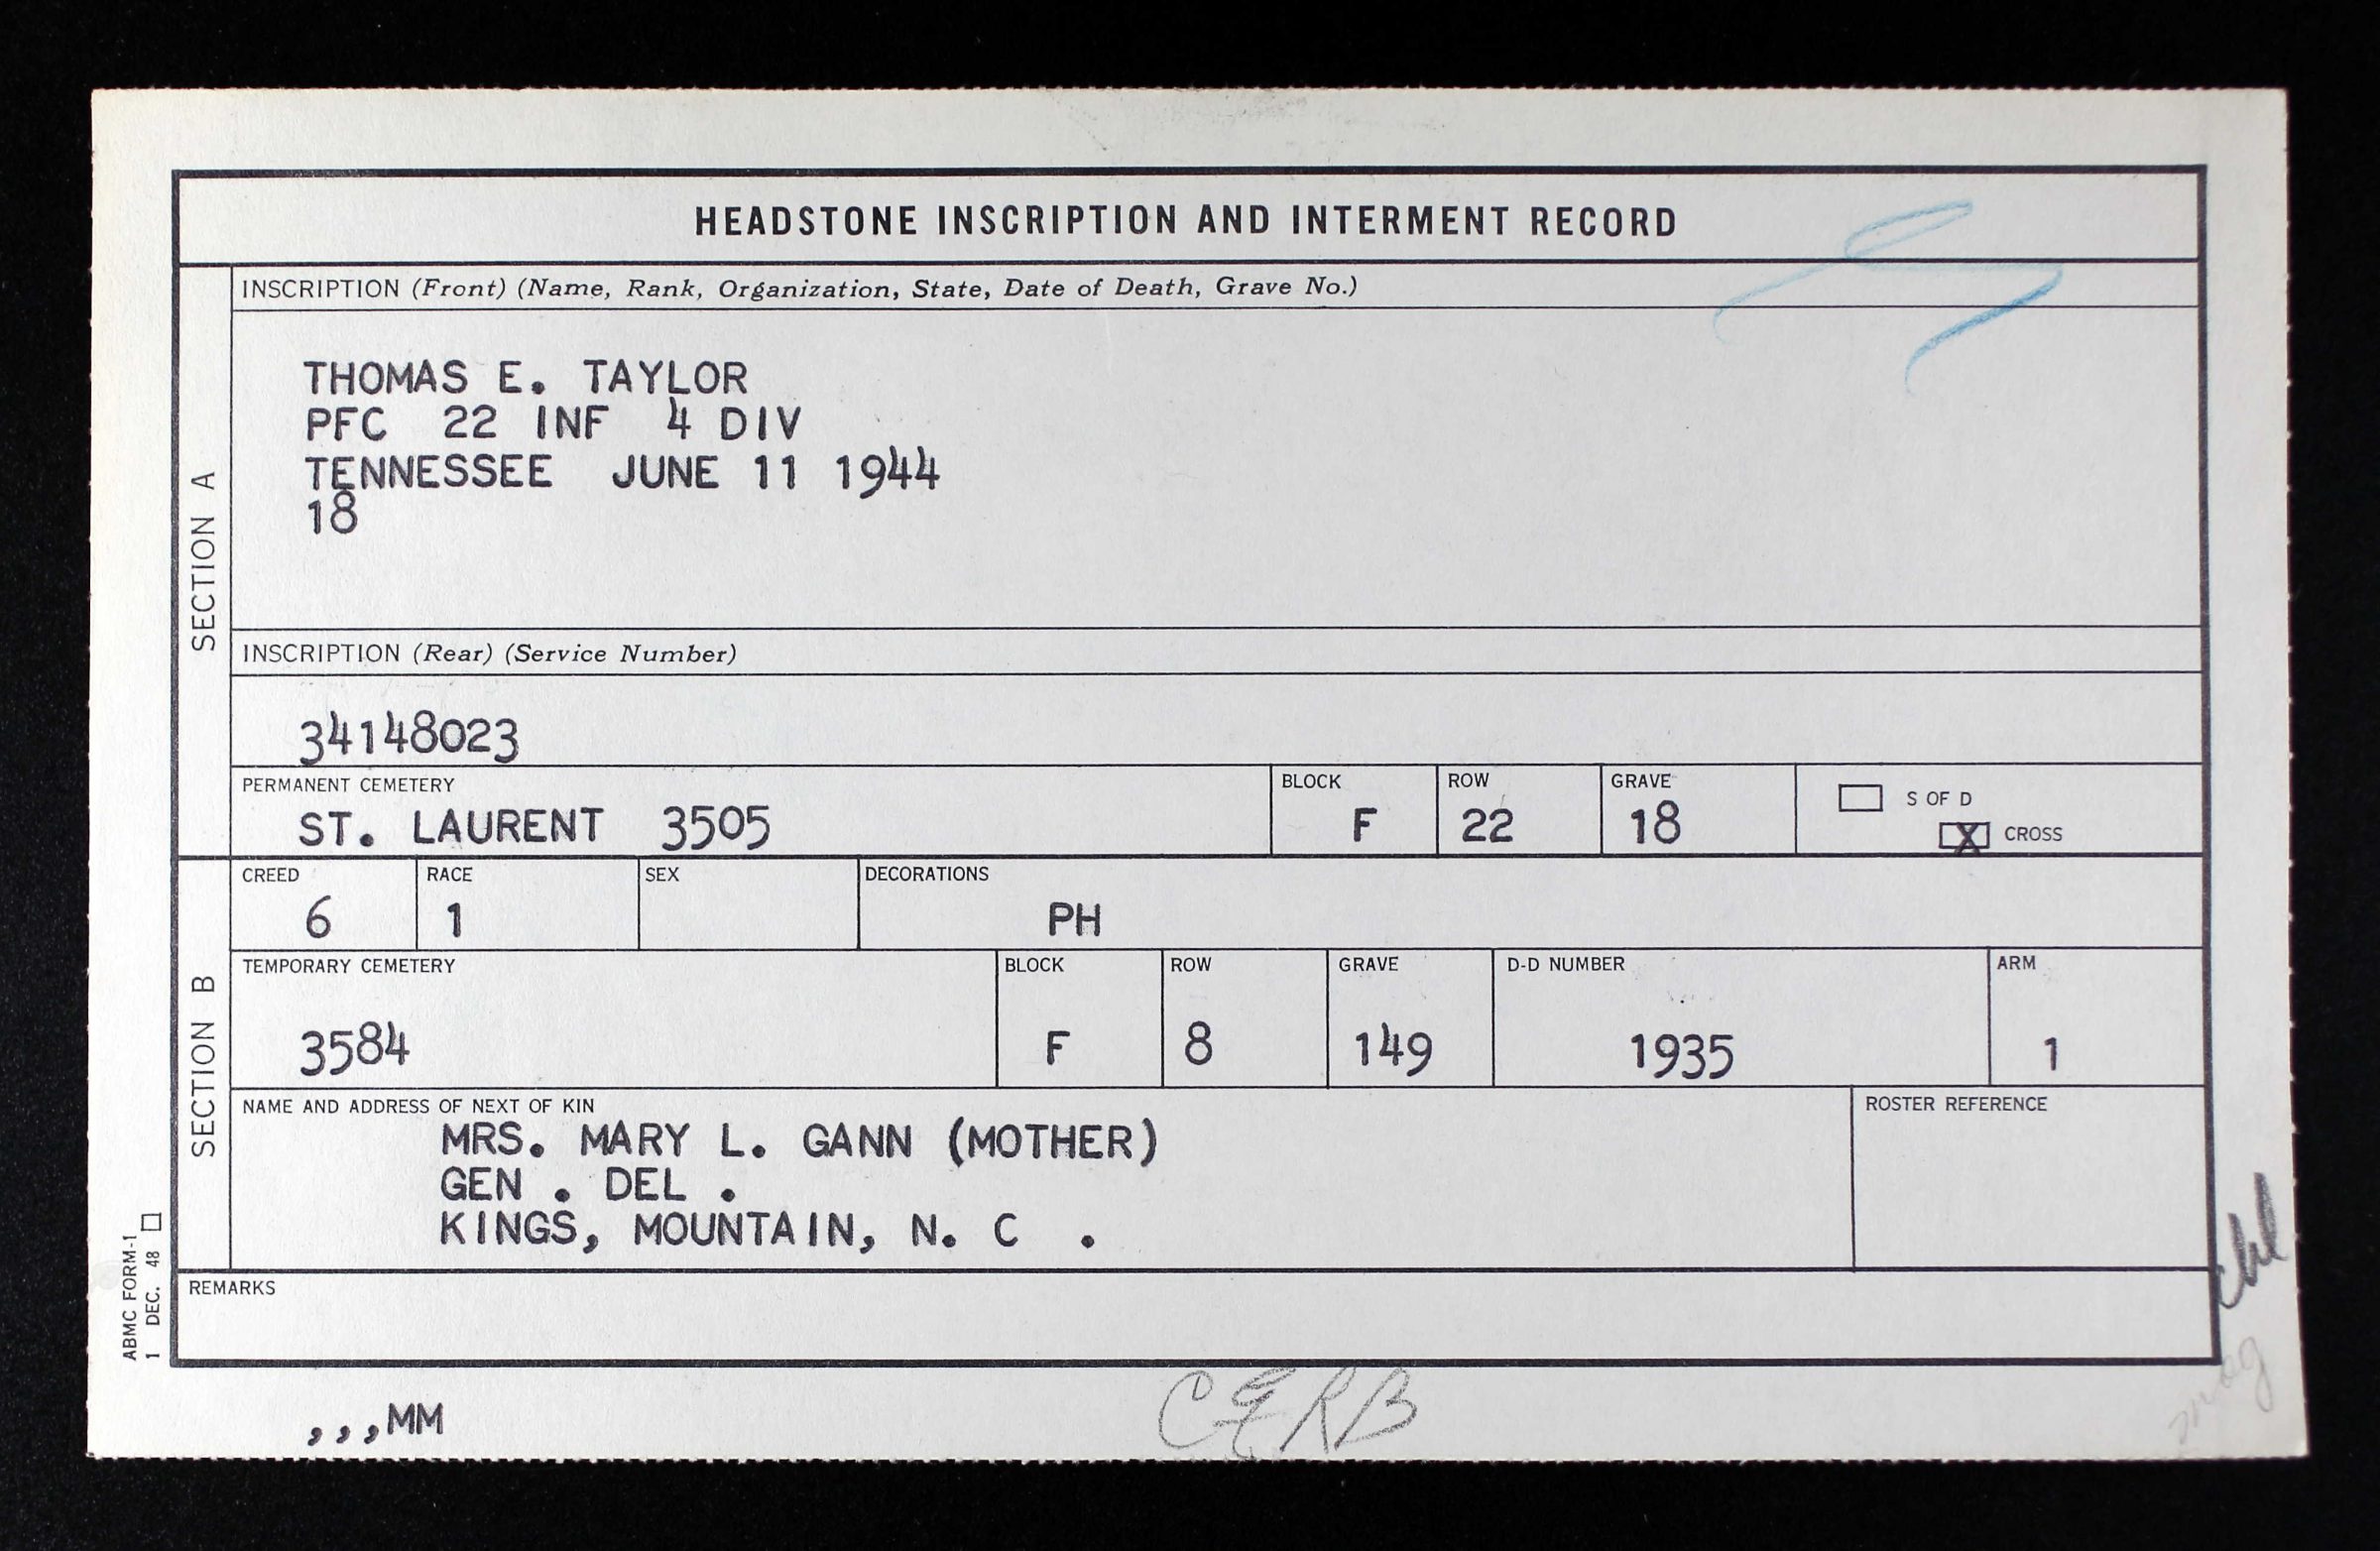 HEADSTONE INSCRIPTION AND INTERMENT RECORD
SECTION A
INSCRIPTION (Front) (Name, Rank, Organization, State, Date of Death, Grave No.)
THOMAS E. TAYLOR
PFC 22 INF 4 DIV
TENNESSEE JUNE 11 1944
18
INSCRIPTION (Rear) (Service Number)
34148023
PERMANENT CEMETERY BLOCK ROW GRAVE S OF D
ST. LAURENT 3505 F 22 18 X CROSS
SECTION B
CREED RACE SEX DECORATIONS
6 1 PH
TEMPORARY CEMETERY BLOCK ROW GRAVE D-D NUMBER ARM
3584 F 8 149 1935 1
NAME AND ADDRESS OF NEXT OF KIN ROSTER REFERENCE
MRS. MARY L. GANN (MOTHER)
GEN . DEL .
KINGS, MOUNTAIN, N. C .
REMARKS
ABMC FORM-1
1 DEC. 48
,,,MM
CERB